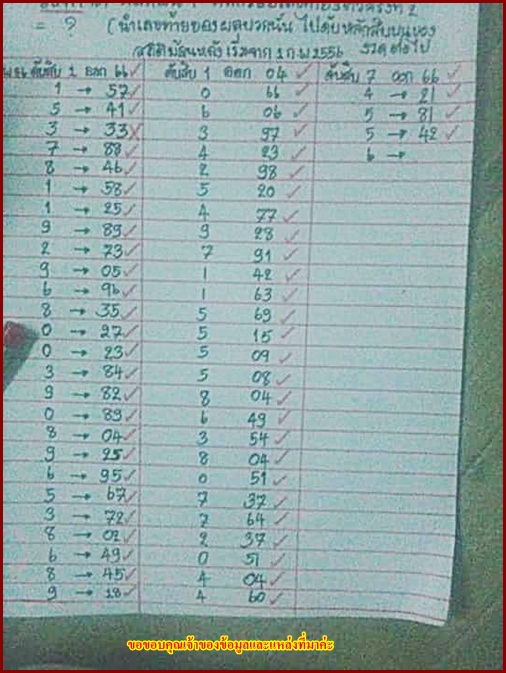 = ? (นำเลขท้ายของผลบวกนั้น ไปดับหลักสิบบนของ
สถิติย้อนหลัง เริ่มจาก 1 ก.พ 2556 งวดต่อไป
ดับสิบ 2 ออก 66 ✓ ดับสิบ 1 ออก 04 ✓ ดับสิบ 7 ออก 66 ✓
1 → 57 ✓ 0 66 ✓ 4 → 21 ✓
5 → 41 ✓ 6 06 ✓ 5 → 81 ✓
3 → 33 ✗ 3 97 ✓ 5 → 42 ✓
7 → 88 ✓ 4 23 ✓ 6 →
8 → 46 ✓ 2 98 ✓
1 → 58 ✓ 5 20 ✓
1 → 25 ✓ 4 77 ✓
9 → 89 ✓ 9 28 ✓
2 → 73 ✓ 7 91 ✓
9 → 05 ✓ 1 42 ✓
6 → 96 ✓ 1 63 ✓
8 → 35 ✓ 5 69 ✓
0 → 27 ✓ 5 15 ✓
0 → 23 ✓ 5 09 ✓
3 → 84 ✓ 5 08 ✓
9 → 82 ✓ 8 04 ✓
0 → 89 ✓ 6 49 ✓
8 → 04 ✓ 3 54 ✓
9 → 25 ✓ 8 04 ✓
6 → 95 ✓ 0 51 ✓
5 → 67 ✓ 7 37 ✓
3 → 72 ✓ 7 64 ✓
8 → 02 ✓ 2 37 ✓
6 → 49 ✓ 0 51 ✓
8 → 45 ✓ 4 04 ✓
9 → 18 ✓ 4 60 ✓
ขอขอบคุณเจ้าของข้อมูลและแหล่งที่มาค่ะ